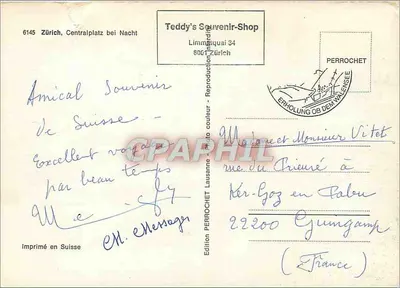 6145 Zürich, Centralplatz bei Nacht
Teddy's Souvenir-Shop
Limmatquai 34
8001 Zürich
PERROCHET
ERHOLUNG OB DEM WALENSEE
Amical Souvenir
de Suisse -
Excellent voyage
par beau temps
M. Messager
Imprimé en Suisse
Edition PERROCHET Lausanne - Photo couleur - Reproduction interdite
CPARAMA.COM
Madame et Monsieur Vitot
rue du Prieuré à
Ker-Goz en Pabu
22200 Guingamp
(France)